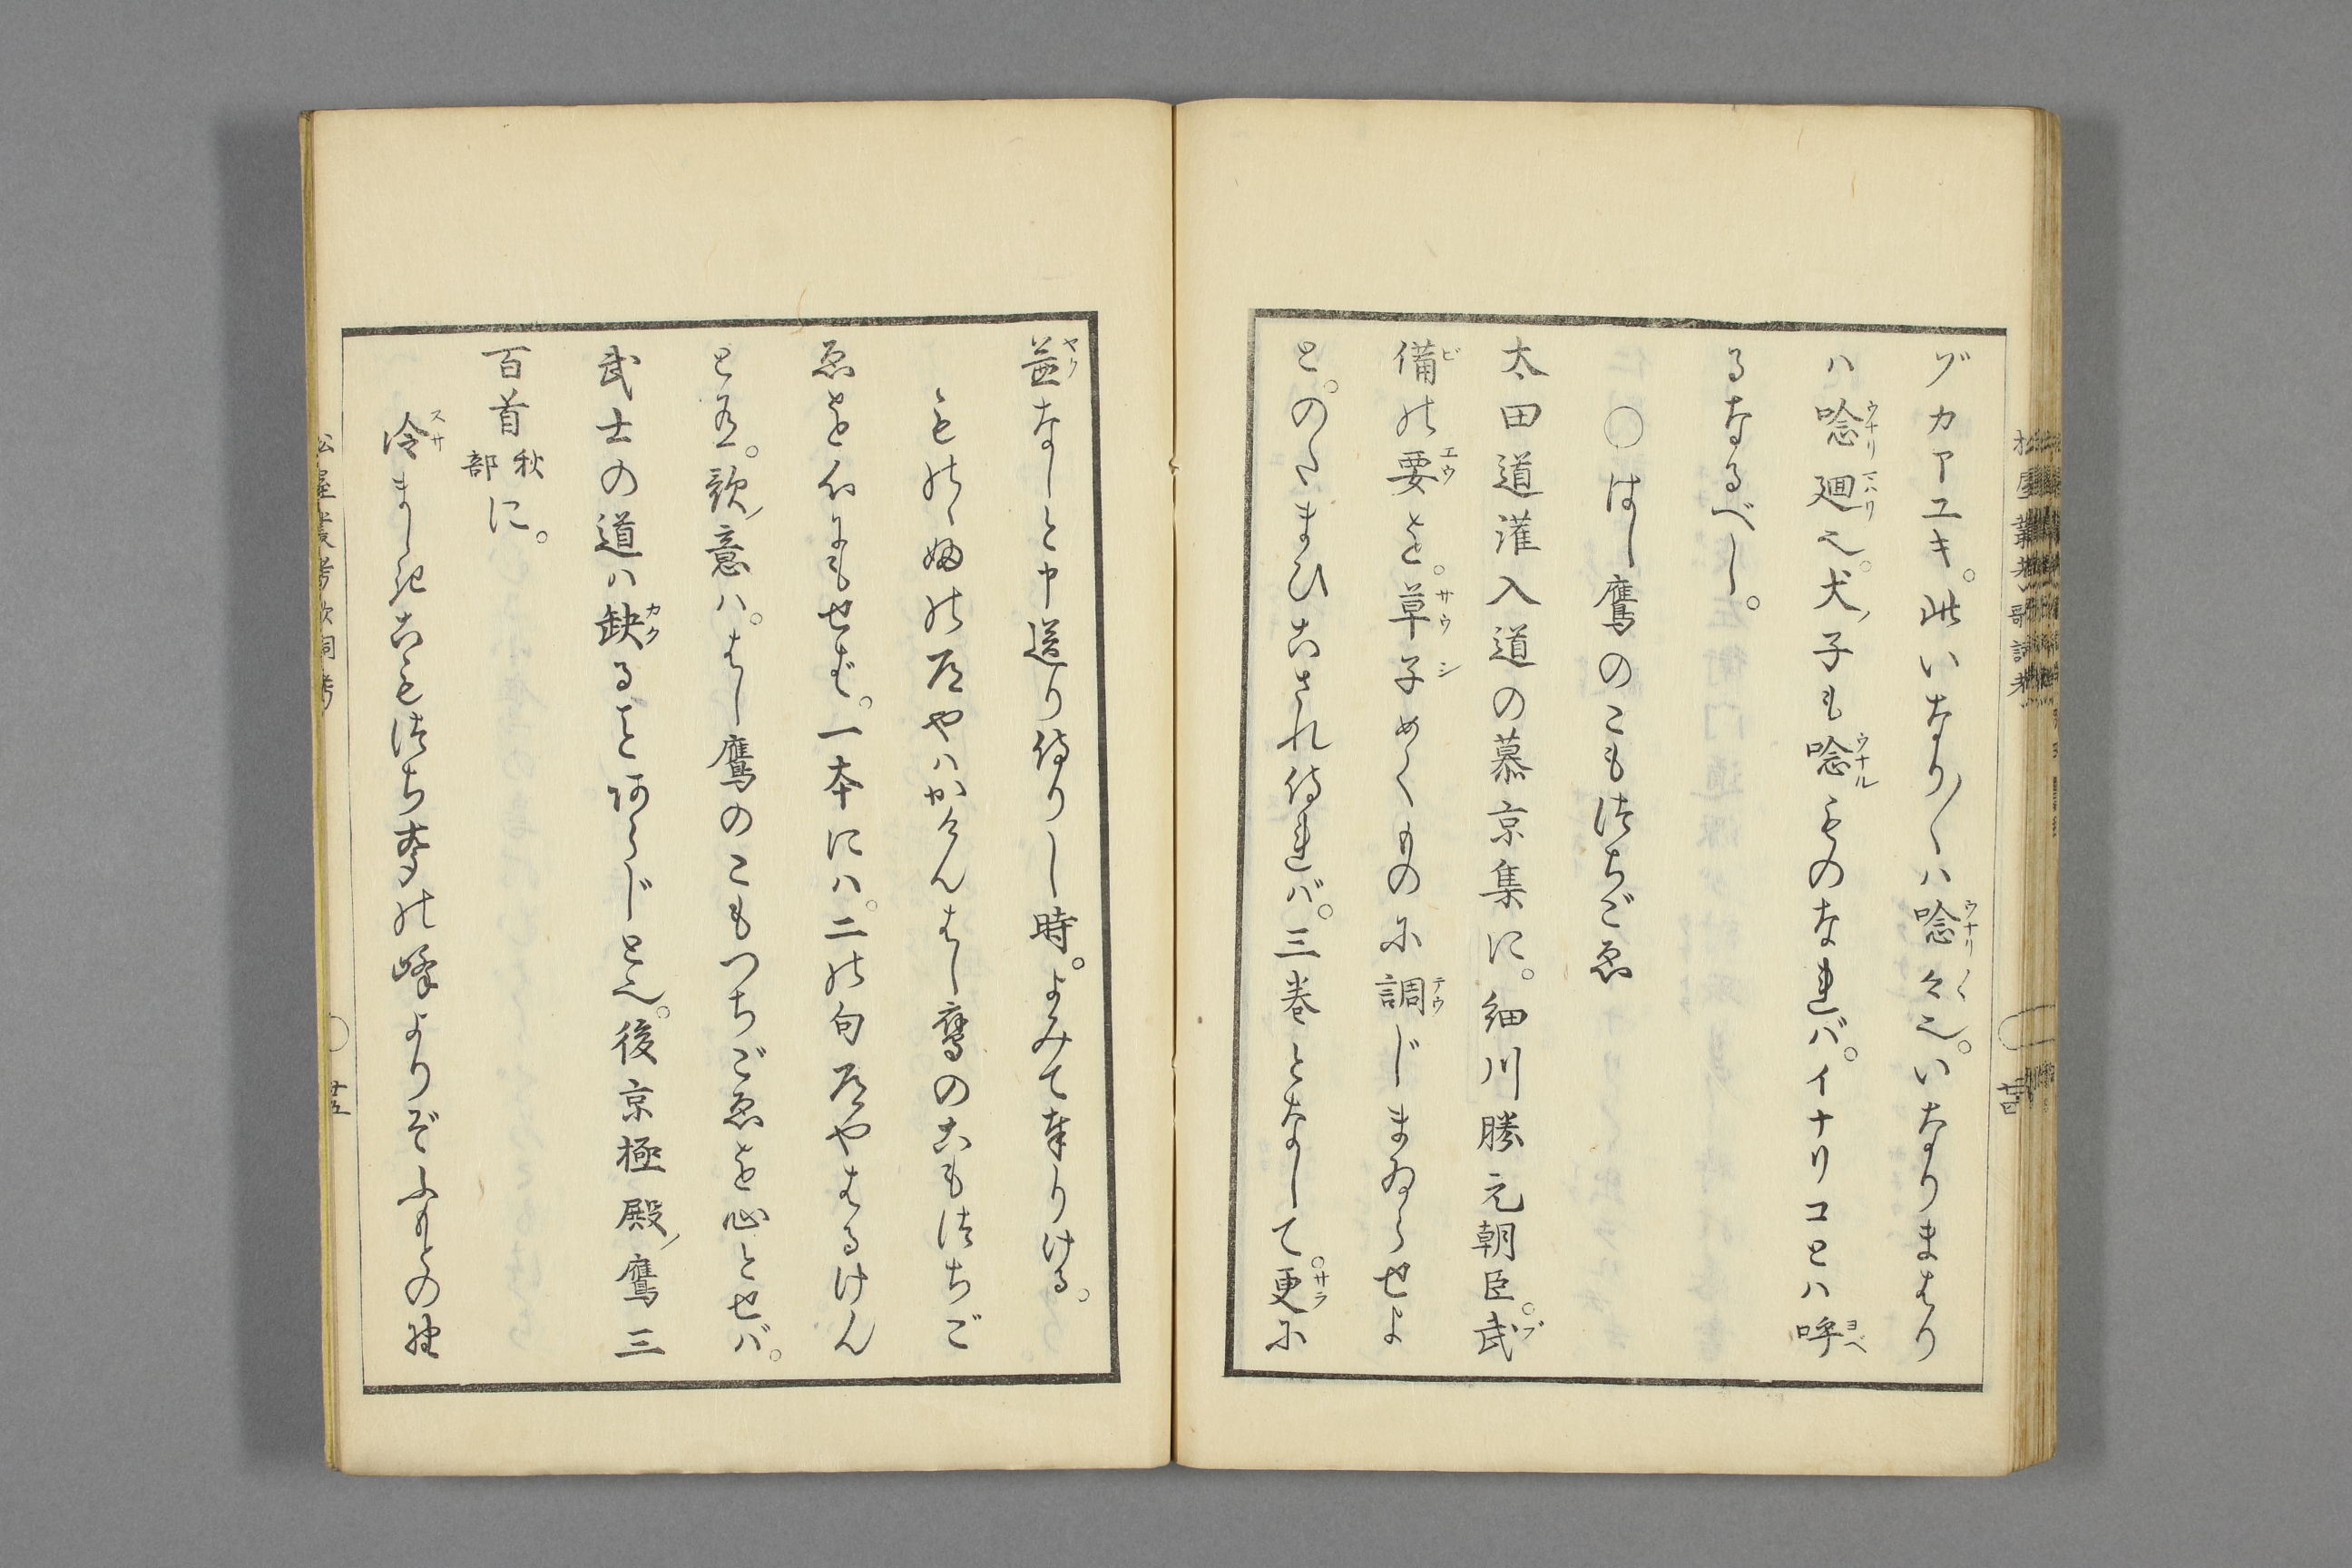 ヅカアユキ。此いなり〳〵ハ唸々也。いなりまはり
ハ唸廻也。犬ノ子も唸ものなれバ。イナリコとハ呼
るなるべし。
〇はし鷹のこもつちごゑ
太田道灌入道の慕京集に。細川勝元朝臣。武
備の要を。草子めくものに調じまゐらせよ
と。のたまひこされ侍れバ。三巻となして。更に
益なしと申送り侍りし時。よみて奉りける。
ものゝふの道やハかくんはし鷹のこもつちご
ゑを行にもせば。一本にハ。二の句道やはるけん
と有。歌ノ意ハ。はし鷹のこもつちごゑを心とせバ。
武士の道ハ缺ることあらじと也。後京極殿ノ鷹三
百首秋部に。
冷ましきこもつち声の峰よりぞふもとの
松屋叢考歌詞考
廿四
廿五